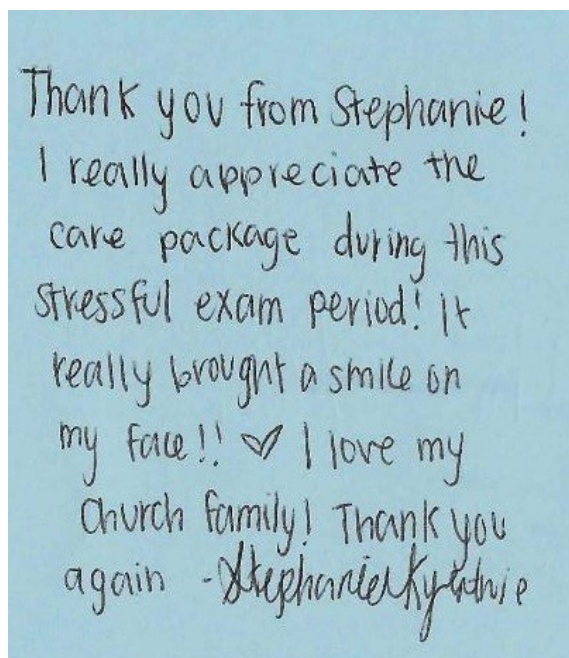 Thank you from Stephanie!
I really appreciate the
care package during this
stressful exam period! It
really brought a smile on
my face!! ♡ I love my
church family! Thank you
again - Stephanie